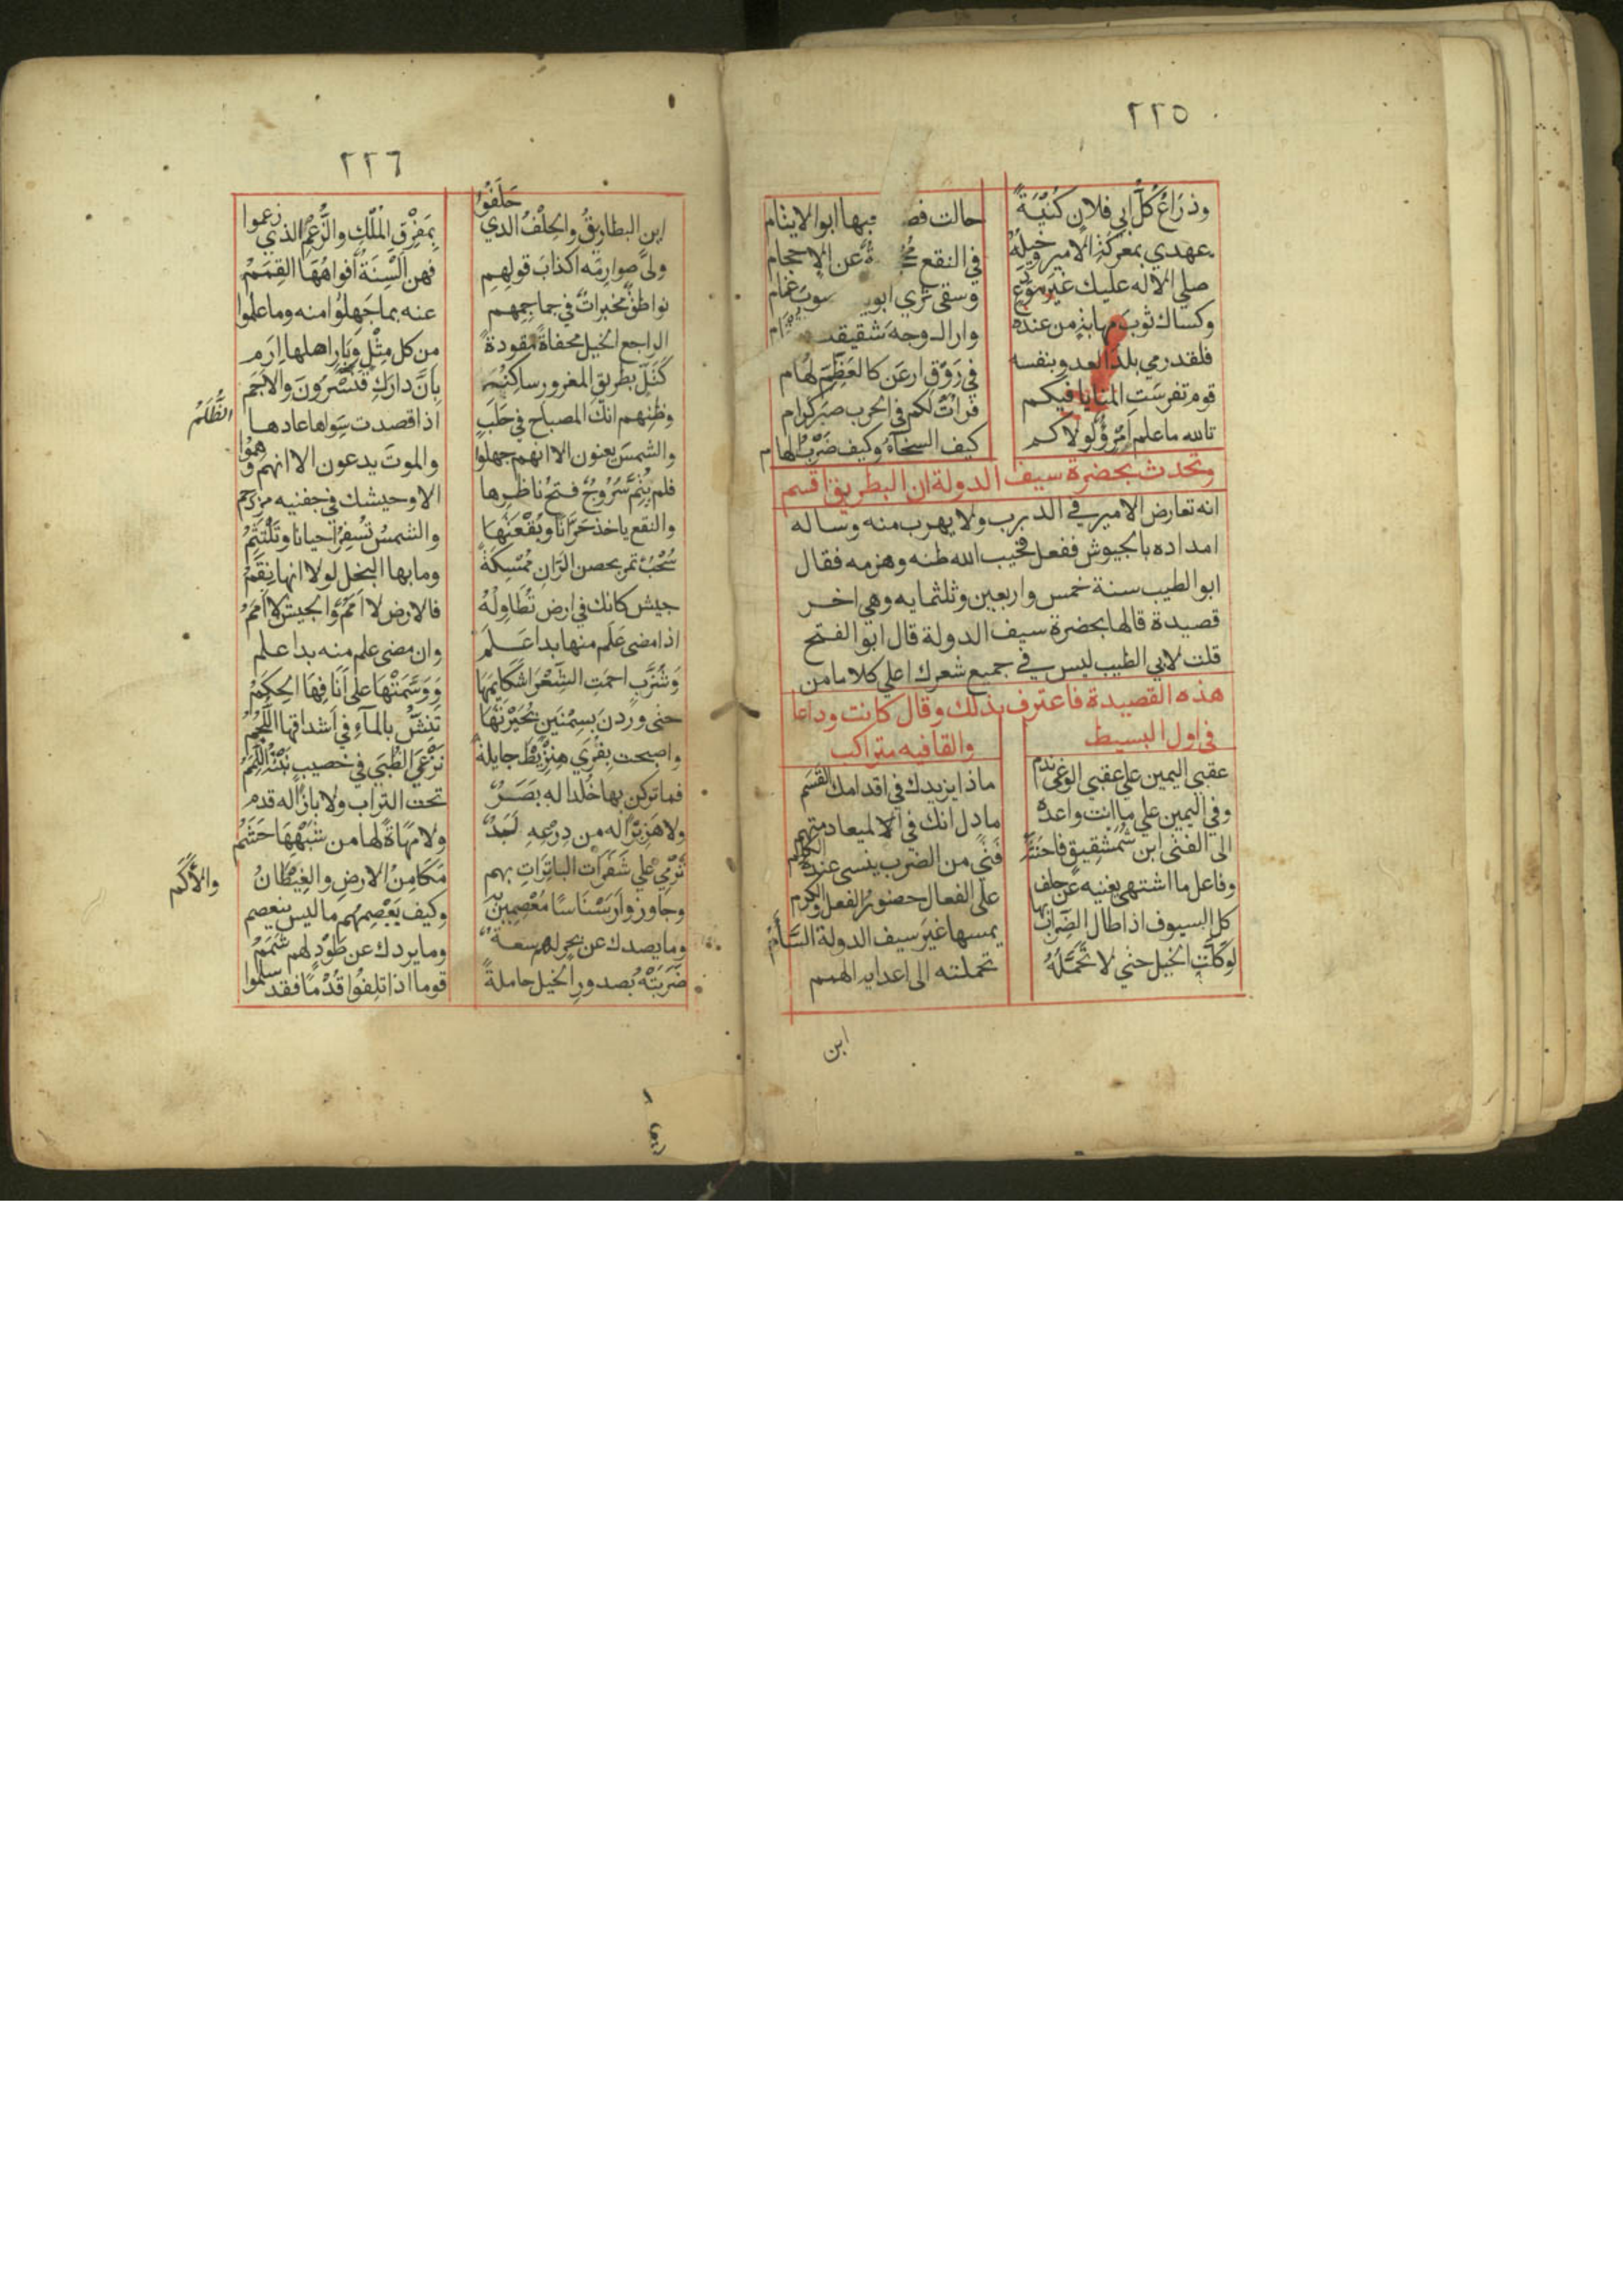 ٢٢٥
وذراعُ كلّ ابي فلان كُنْيَةً
حالت فص بها ابوالايتام
عهدي بمعركة الامير وخيلُهُ
في النقع مُحْ ةٌ عن الاحجام
صلى الاله عليك غيرَ مودّع
وسقى ثري ابوي صوبَ غمام
وكساك ثوبَ مهابةٍ من عنده
وارا وجهَ شقيقك
فلقد رمي بلدَ العدو بنفسه
في رَوْقِ ارعَن كالغطَمِّ لُهام
قوم تفرسَتِ المنايا فيكم
فرأتْ لكم في الحرب صبر كرام
تالله ما علم امْرُؤٌ لولاكم
كيف السخاءُ وكيف ضَرْبُ الهام
وتحدث بحضرة سيف الدولة ان البطريق اقسم
انه تعارض الامير في الدرب ولا يهرب منه وساله
امداده بالجيوش ففعل فخيب الله ظنه وهزمه فقال
ابو الطيب سنة خمس واربعين وثلثمايه وهي اخر
قصيدة قالها بحضرة سيف الدولة قال ابو الفتح
قلت لابي الطيب ليس في جميع شعرك اعلي كلاما من
هذه القصيدة فاعترف بذلك وقال كانت وداعا
في اول البسيط
والقافيه متراكب
عقبي اليمين علي عقبي الوغي ندم
ماذا يزيدك في اقدامك القسَم
وفي اليمين علي ما انت واعده
ما دل انك في الميعاد متهم
الى الفتى ابن شُمُشْقِيقٍ فاحنثَهُ
فتًى من الضرب ينسى عنده الكلم
وفاعل ما اشتهى يغنيه عن حلف
على الفعال حضورُ الفعل والكرم
كل السيوف اذا طال الضِرابُ بها
يمسها غيرَ سيف الدولة السَّأَمُ
لو كلّتِ الخيل حتي لا تحَمَّلَهُ
تحملته الى اعدايه الهمم
ابن
٢٢٦
اين البطاريقُ والحِلْفُ الذي حَلَفُوا
بِمَفْرِقِ المَلْكِ والزَّعْمُ الذي زعموا
ولىّ صوارمَه اكذابَ قولِهم
فهن اَلْسِنَةٌ افواهُهَا القِمَمُ
نواطقٌ مخبراتٌ في جماجِمِهم
عنه بما جَهِلُوا منه وما علموا
الراجع الخيل محفاةً مقودةً
من كل مِثْلِ وَبَارٍ اهلها اِرَم
كَتَلّ بِطريقٍ المغرورِ ساكِنُهَا
بِاَنَّ دارَكَ قِنَّسْرُونَ والاَجَمُ
وظنهم انك المصباح في حَلَبٍ
اذا قصدت سِوَاها عادها الظُّلَمُ
والشمسَ يعنون الا انهم جهلوا
والموتَ يدعون الا انهم وَهَمُوا
فلم يُتِمَّ سَرُوجٌ فتحَ ناظِرِها
الا وجيشك في جفنيه مزدحم
والنقع ياخذ حَرَّانًا وبُقْعَتَهَا
والشمسُ تُسْفِرُ احيانا وتَلْتَثِمُ
سُحْبٌ تمر بحصن الرَّانِ مُمْسِكَةً
وما بها البُخل لولا انها نِقَمُ
جيش كانك في ارضٍ تُطَاوِلُهُ
فالارض لا اَمَمٌ والجيش لا اَمَمُ
اذا مضى عَلَم منها بدا عَلَمٌ
وان مضى علم منه بدا علم
وَشُزَّبٍ احمَتِ الشِّعْرَا شَكَايِمَهَا
وَوَسَّمَتْهَا على اَنَافِهَا الحِكَمُ
حتى وردنَ بسِمْنِين بُحَيْرَتَهَا
تَنِشُّ بالمآءِ في اشداقها اللُّجُمُ
واصبحت بِقُرَي هِنْزِيْطَ جايلةً
تَرْعَى الظُّبَي في خصيبٍ نَبْتُهُ اللِّمَمُ
فما تركن بها خُلدا له بَصَرٌ
تحت التراب ولا بازًا له قدم
ولا هَزِبْرًا له من دِرْعِهِ لِبَدٌ
ولا مَهَاةً لها من شبهها حَشَمُ
تَرْمِي علي شَفَرَاتِ الباتِرَاتِ بهم
مَكَامِنُ الارضِ والغِيْطَانُ والأَكَم
وجاوزوا اَرْسَنَاسًا مُعْصِمِينَ به
وكيف يَعْصِمُهم ما ليس ينعصم
وما يصدك عن بحر لهم سعةٌ
وما يردك عن طَوْدٍ لهم شَمَمُ
ضَرَبْتَهُ بصدورِ الخيل حاملةً
قوما اذا تلِفُوا قُدْمًا فقد سلموا